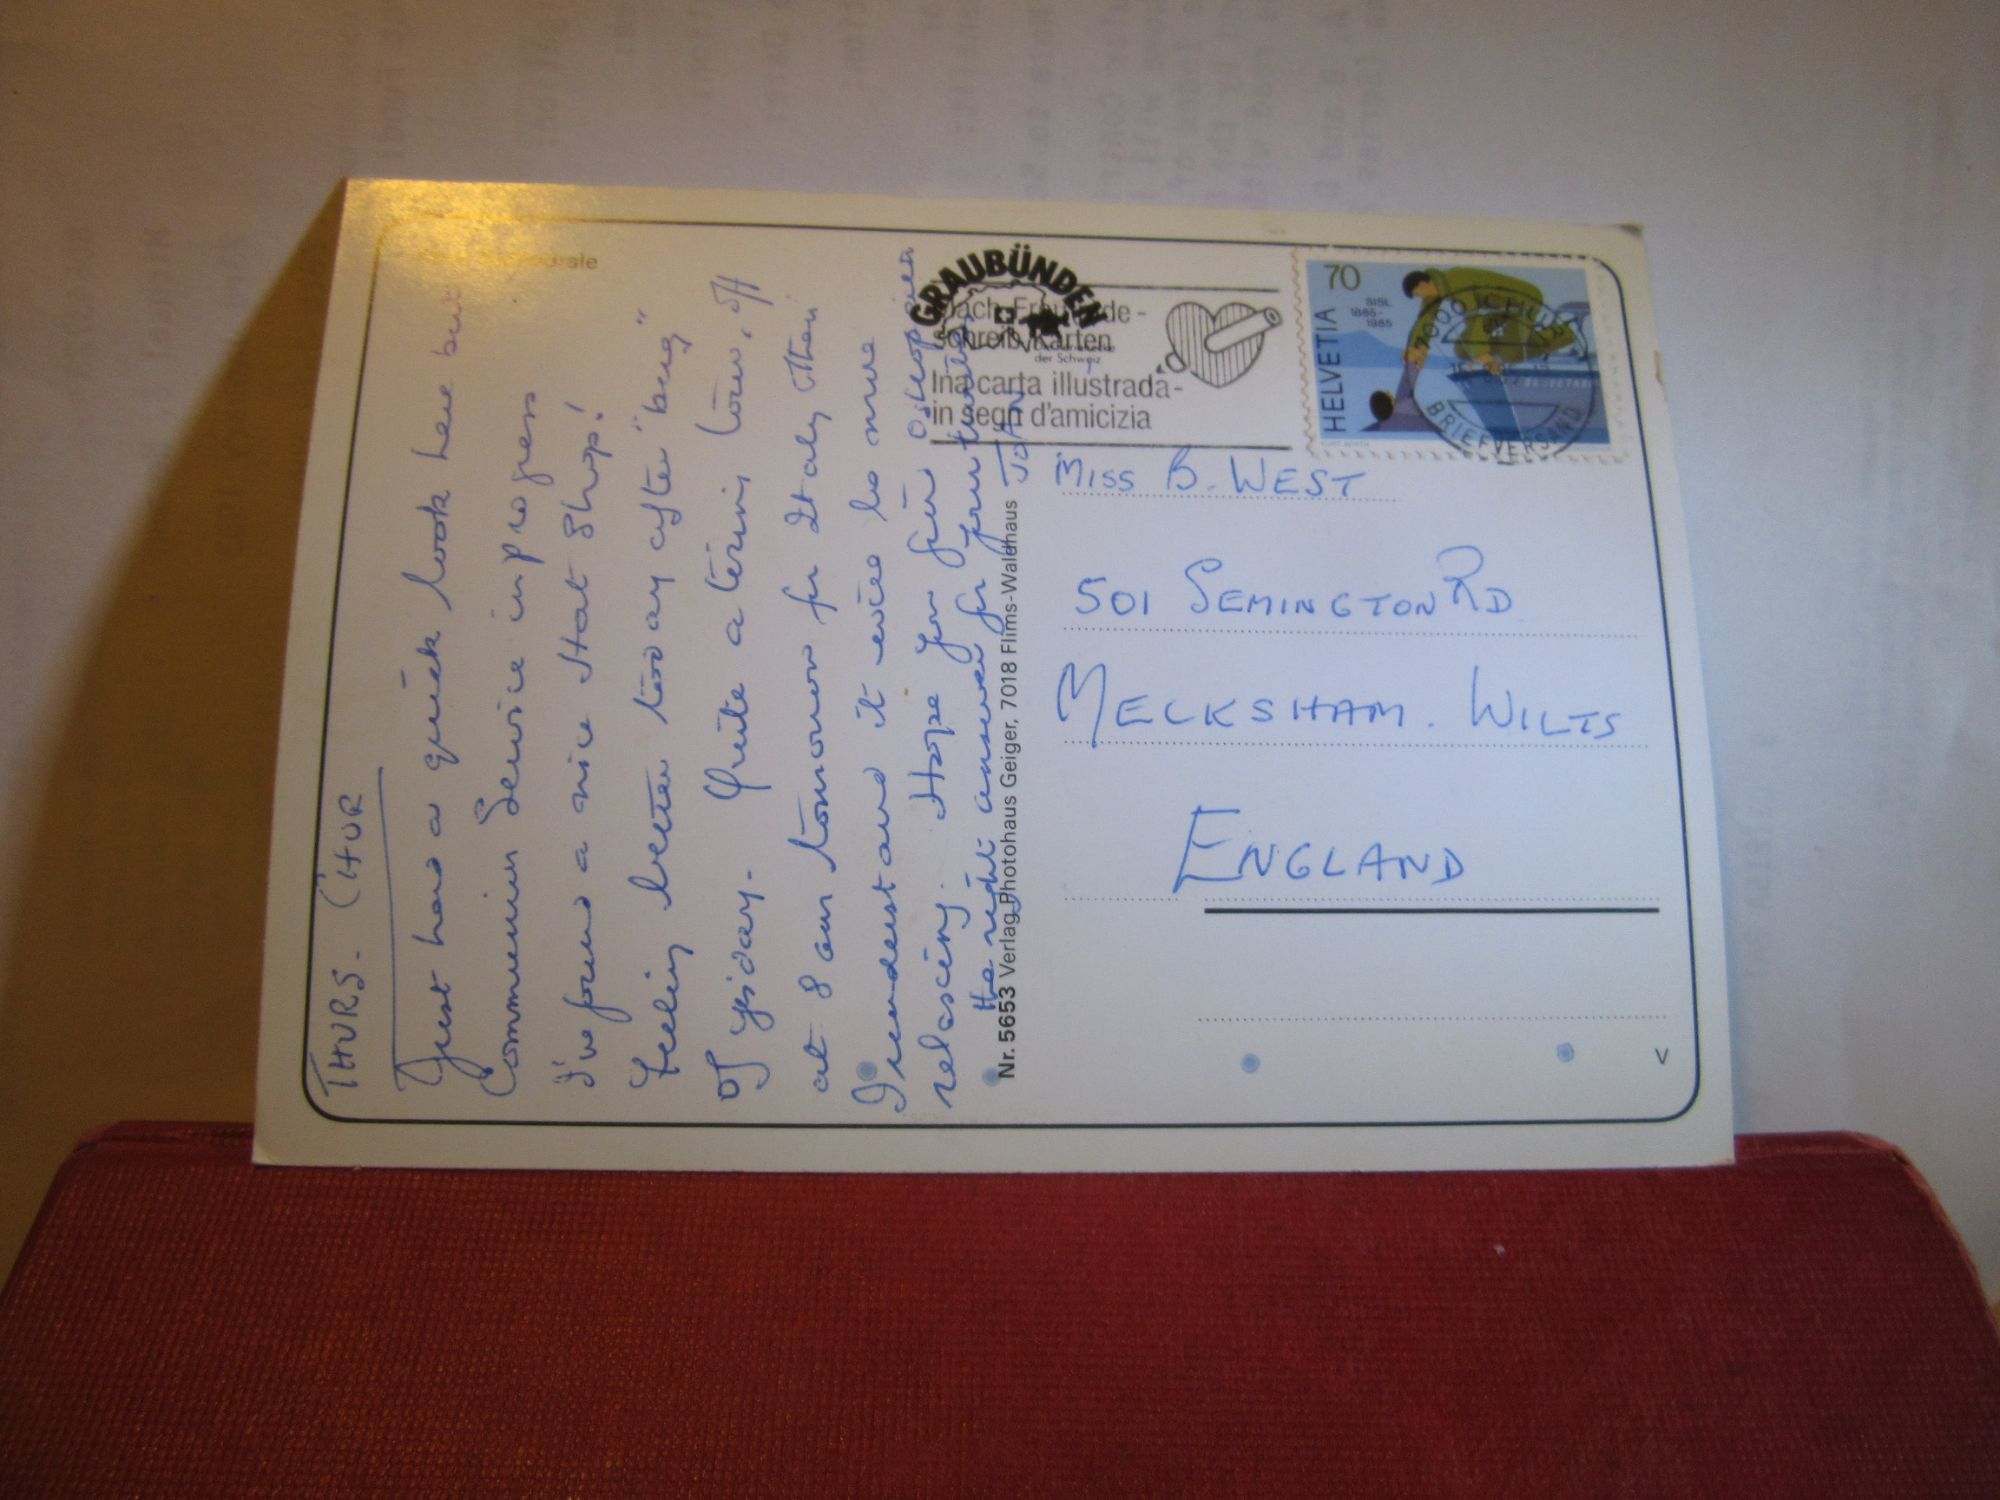 THURS. CHUR
Just had a quick look here but
Communion Service in progress
I've found a nice Hat Shop!
Feeling better today after "being
off" y'day. Quite a tiring tour, off
at 8 am tomorrow for Italy then
I understand it will be more
relaxing. Hope you find
the right answer for your
JOAN
GRAUBÜNDEN
schreib Karten
der Schweiz
Ina carta illustrada-
in segn d'amicizia
HELVETIA
70
SISL
1885-
1985
KURT WIRTH
7000 CHUR
BRIEFVERSAND
Nr. 5653 Verlag Photohaus Geiger, 7018 Flims-Waldhaus
MISS B. WEST
501 SEMINGTON RD
MELKSHAM. WILTS
ENGLAND
V